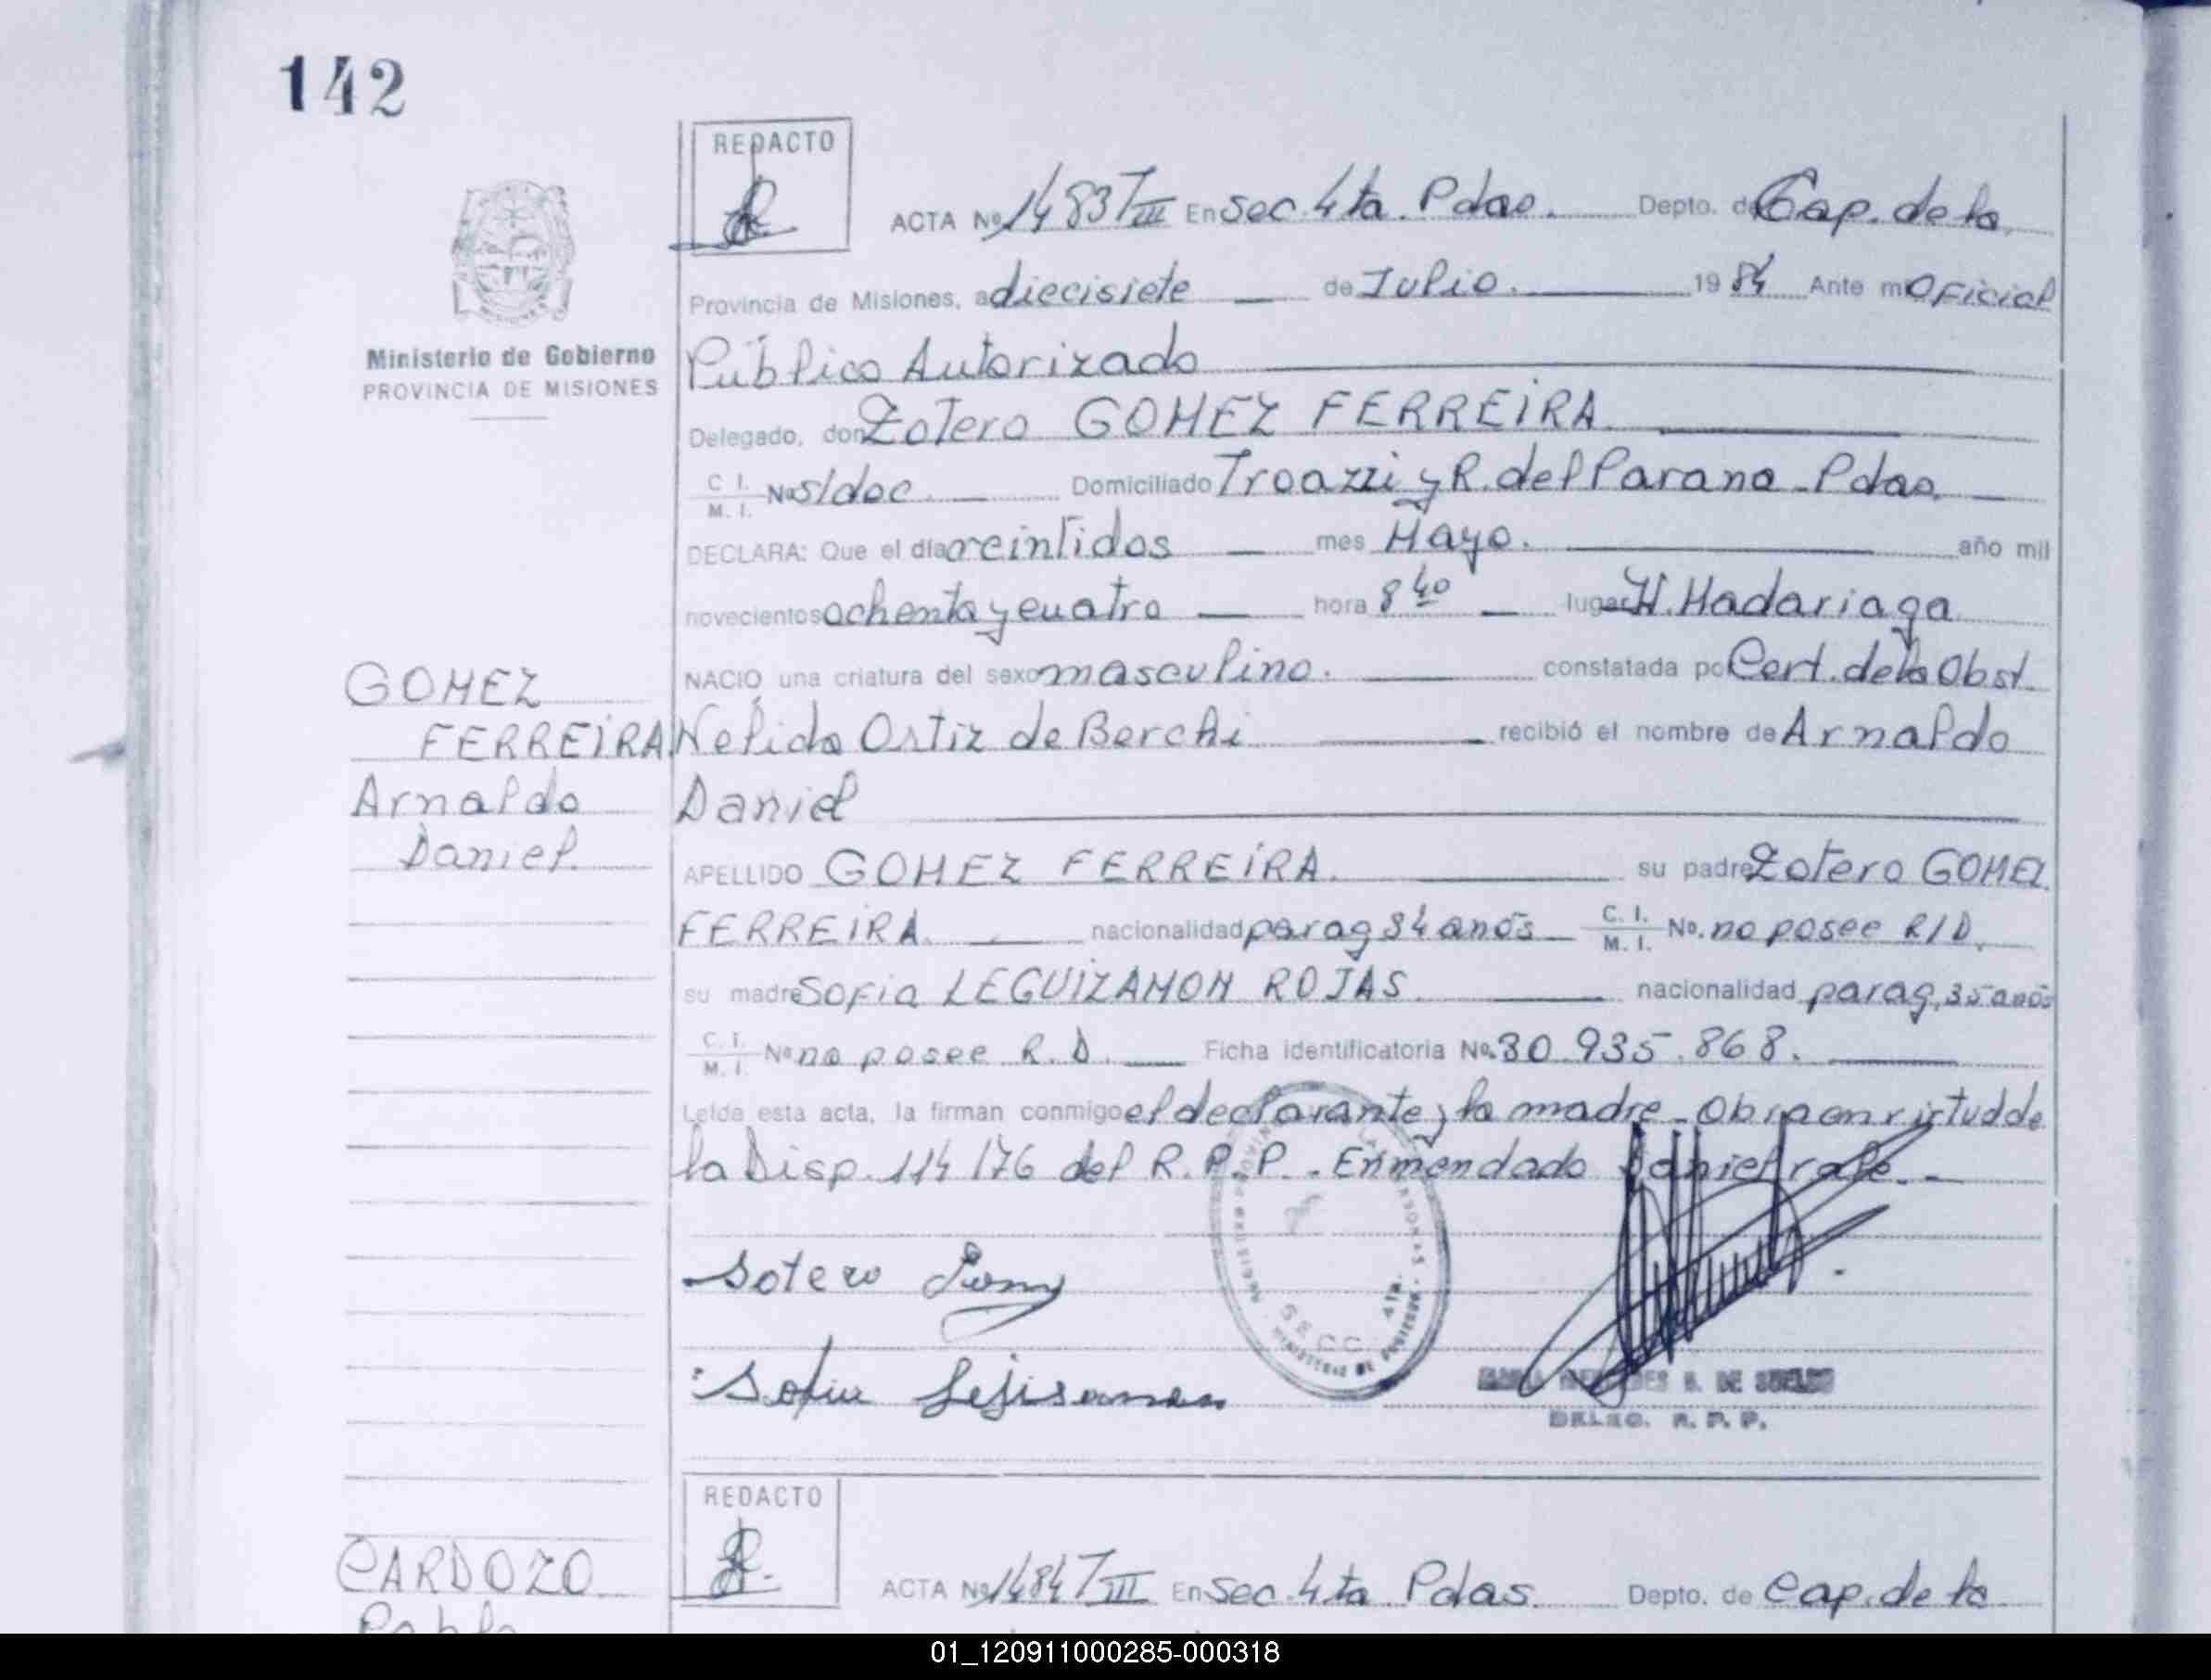 142
REDACTO
ACTA Nº 1483 T III En Sec. 4ta. Pdas. Depto. de Cap. de la
Provincia de Misiones, a diecisiete de Julio. 19 84 Ante mi Oficial
Ministerio de Gobierno
PROVINCIA DE MISIONES
Público Autorizado
Delegado, don Zotero GOMEZ FERREIRA.
C I. M. I. Nº s/doc Domiciliado Troazzi y R. del Parana - Pdas.
DECLARA: Que el día veintidos mes Mayo. año mil
novecientos ochenta y cuatro hora 8 40 lugar H. Madariaga
NACIO una criatura del sexo masculino. constatada por Cert. de la Obst.
GOMEZ
FERREIRA
Arnaldo
Daniel.
Nelida Ortiz de Berchi recibió el nombre de Arnaldo
Daniel
APELLIDO GOMEZ FERREIRA. su padre Zotero GOMEZ
FERREIRA. nacionalidad parag 34 años C. I. M. I. No. no posee R/D.
su madre Sofia LEGUIZAMON ROJAS nacionalidad parag, 35 años
C. I. M. I. Nº no posee R. D. Ficha identificatoria No. 30.935.868.
Leída esta acta, la firman conmigo el declarante y la madre - Obra en virtud de
la Disp. 114/76 del R.P.P. - Enmendado Daniel vale. -
Sotero
Sofia
SECC. 4TA.
MINISTERIO DE GOBIERNO
DE SUELDO
DELEG. R. P. P.
REDACTO
CARDOZO
Pablo
ACTA Nº 1484 T III En Sec. 4ta Pdas. Depto. de Cap. de la
01_120911000285-000318